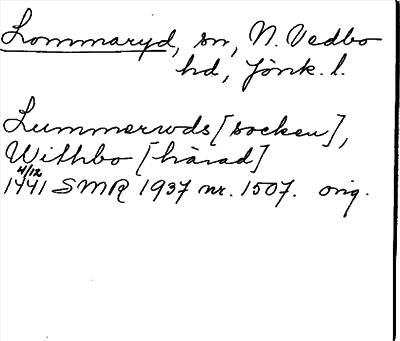 Lommaryd, sn, N. Vedbo
hd, Jönk. l.
Lummerwds [socken],
Withbo [härad]
4/12
1441 SMR 1937 nr. 1507. orig.